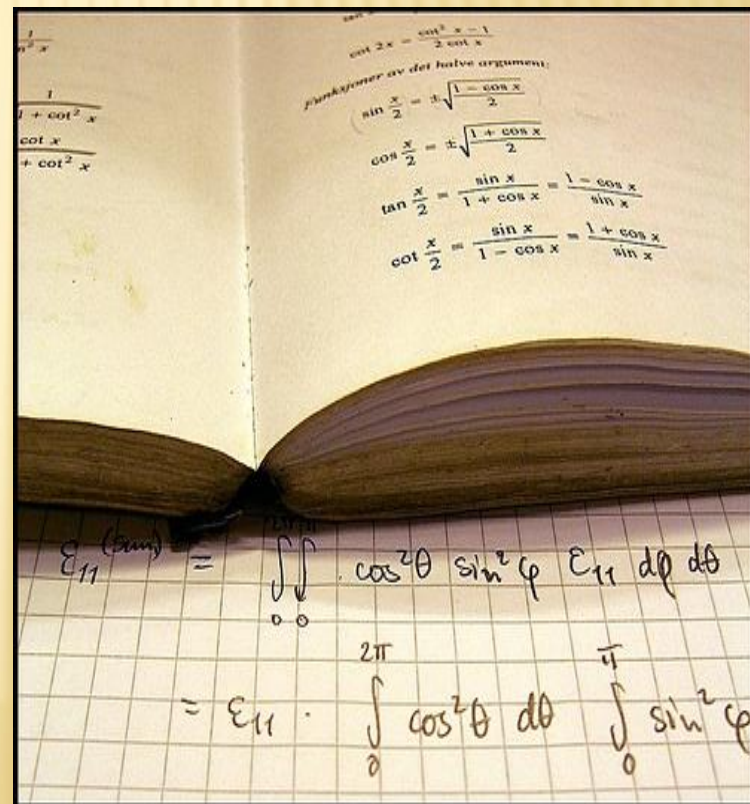 1
n² x
1
1 + cot² x
cot x
+ cot² x
cot 2x = (cot² x − 1)/(2 cot x)
Funksjoner av det halve argument:
sin x/2 = ±√((1 − cos x)/2)
cos x/2 = ±√((1 + cos x)/2)
tan x/2 = sin x/(1 + cos x) = (1 − cos x)/sin x
cot x/2 = sin x/(1 − cos x) = (1 + cos x)/sin x
ε₁₁⁽ˢᵘᵐ⁾ = ∫₀ ∫₀ cos²θ sin²φ ε₁₁ dφ dθ
= ε₁₁ · ∫₀^2π cos²θ dθ ∫₀^π sin²φ